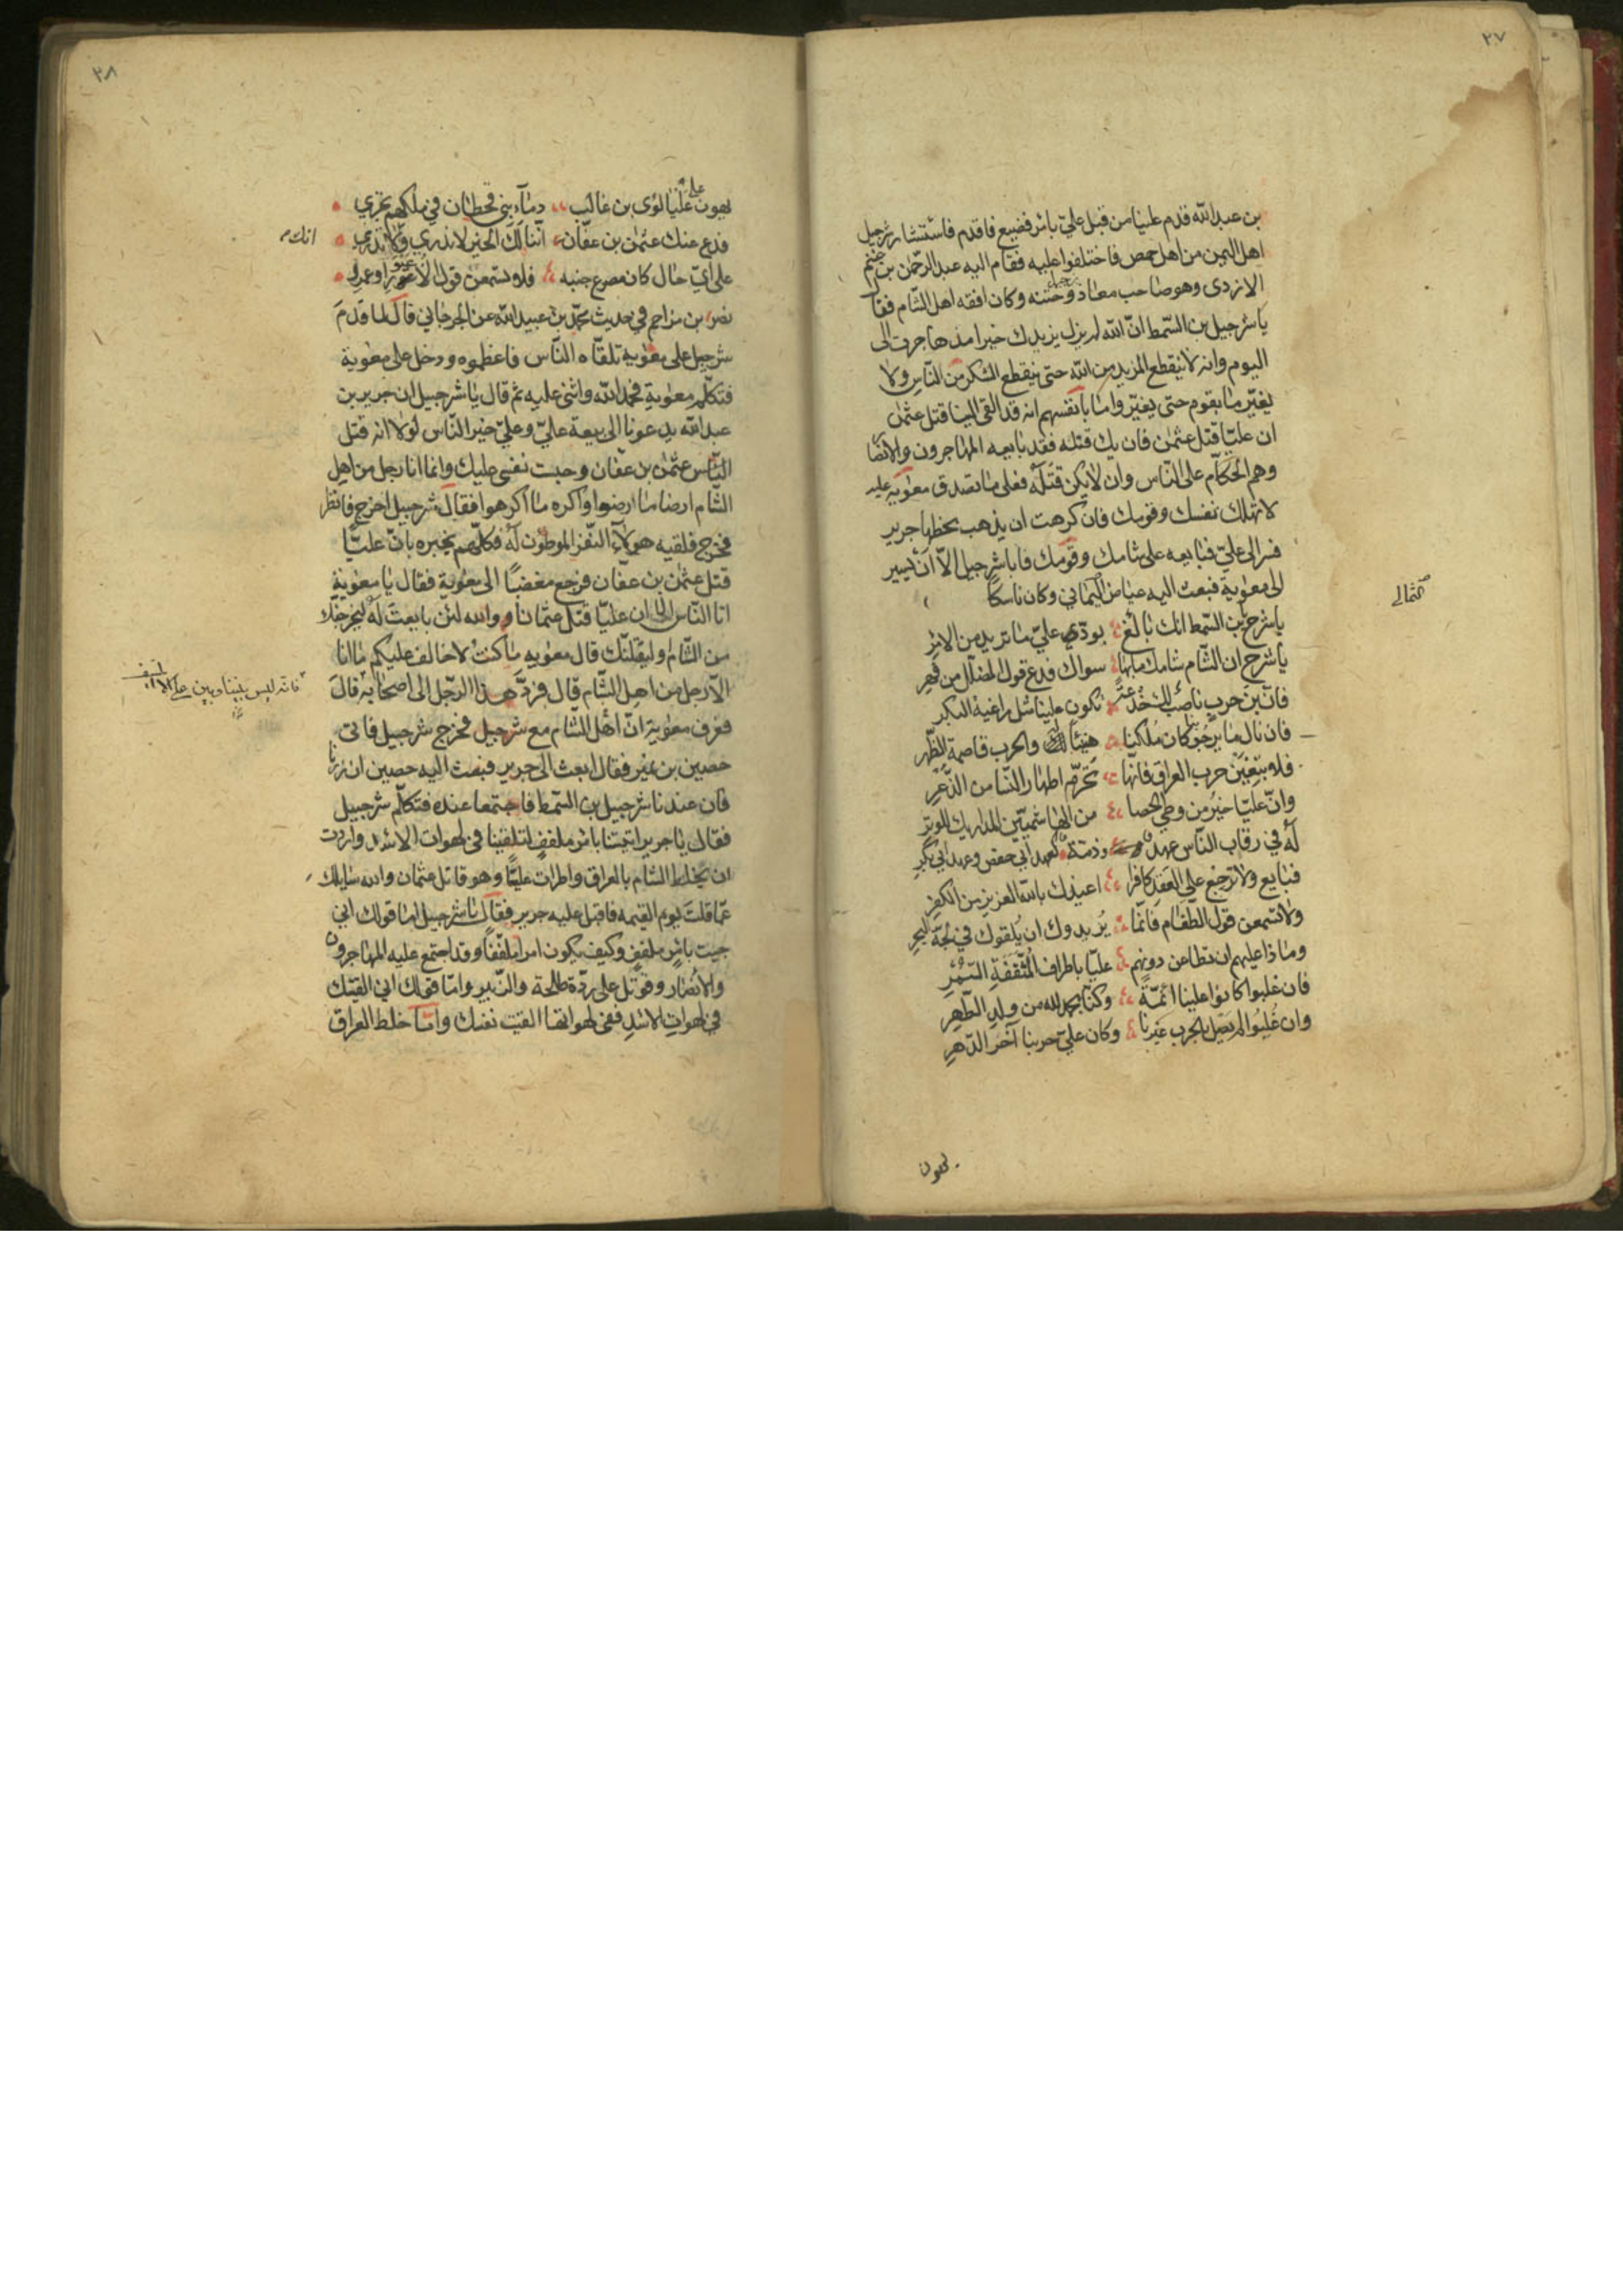 ٢٧
بن عبد الله قدم علينا من قبل عليّ بامر فضيع فاقدم فاستشار شرحبيل
اهل اليمن من اهل حمص فاختلفوا عليه فقام اليه عبد الرحمن بن غنم
الازدى وهو صاحب معاد وختنه وكان افقه اهل الشام فقال
يا شرحبيل بن السّمط انّ الله لم يزل يزيدك خيرا مذ هاجرت الى
اليوم وانه لا ينقطع المزيد من الله حتى ينقطع الشكر من النّاس ولا
يغيّر ما بقوم حتى يغيّروا ما بانفسهم انه قد القى الينا قتل عثمن
ان عليّا قتل عثمن فان يك قتله فقد بايعه المهاجرون والانصا
وهم الحكّام على النّاس وان لا يكن قتله فعلى ما تصدق معوية عليه
لا تهلك نفسك وقومك فان كرهت ان يذهب بحظها جرير
فسر الى عليّ فبايعه على شامك وقومك فابا شرحبيل الاّ ان يسير
الى معوية فبعث اليه عياض اليماني وكان ناسكا
الثمالى
يا شرح يا بن السّمط انك بالغ بودّ عليّ ما تريد من الامر
يا شرح ان الشام شامك ما بها سواك فدع قول المضلل من فهر
فان بن حرب ناصب لك خدعة تكون علينا مثل راغية البكر
فان نال ما يرجو بنا كان ملكنا هنيئا له والحرب قاصمة الظّهر
فلا تبغين حرب العراق فانّها تحرّم اطهار النّسا من الذّعر
وانّ عليّا خير من وطي الحصا من الهاشميّين المداريك للوتر
له في رقاب النّاس عهد وذمة كعهد ابي حفص وعهد ابي بكر
فبايع ولا ترجع على العقب كافرا اعيذك بالله العزيز من الكفر
ولا تسمعن قول الطّغام فانّما يريدوك ان يلقوك في لجّة البحر
وما ذا عليهم ان تطاعن دونهم عليّا باطراف المثقّفة السّمر
فان غلبوا كانوا علينا ائمّة وكنّا بحمد لله من ولد الطّهر
وان غلبوا لم يصل بالحرب غيرنا وكان عليّ حربنا آخر الدّهر
لهون
٢٨
لهون على عليا لوى بن غالب دمآء بني قحطان في ملكهم تجري
فدع عنك عثمن بن عفّان انّنا لك الخير لا ندري وانك لا تدري
انك
على ايّ حال كان مصرع جنبه فلا تسمعن قول الاعيور او عمرو
نصر بن مزاحم في حديث محمّد بن عبيد الله عن الجرجاني قال لما قدم
شرحبيل على معوية تلقّاه النّاس فاعظموه ودخل على معوية
فتكلّم معوية فحمد الله واثنى عليه ثم قال يا شرحبيل ان جرير بن
عبد الله يدعونا الى بيعة عليّ وعليّ خير النّاس لولا انه قتل
عثمن بن عفّان وحبست نفسي عليك وانما انا رجل من اهل
الشّام ارضا ما ارضوا واكره ما اكرهوا فقال شرحبيل اخرج فانظر
فخرج فلقيه هولآء النّفر الموطّون له فكلّهم يخبره بانّ عليّا
قتل عثمن بن عفّان فرجع مغضبًا الى معوية فقال يا معوية
ابا النّاس الا ان عليّا قتل عثمانا ووالله لئن بايعت له ليخرجنّك
من الشّام وليقلنّك قال معويه ما كنت لاخالف عليكم ما انا
الاّ رجل من اهل الشّام قال فردّ هذا الرّجل الى اصحابه قال
فانه ليس بيننا وبين على الا
فعرف معوية انّ اهل الشّام مع شرحبيل فخرج شرحبيل فاتى
حصين بن نمير فقال ابعث الى جرير فبعث اليه حصين ان زرنا
فان عندنا شرحبيل بن السّمط فاجتمعا عنده فتكلّم شرحبيل
فقال يا جرير اتيتنا بامر ملفف لتلقينا في لهوات الاسد واردت
ان تخلط الشام بالعراق واطرات عليّا وهو قاتل عثمان والله سايلك
عمّا قلت يوم القيمه فاقبل عليه جرير فقال يا شرحبيل اما قولك اني
جيت بامر ملفف وكيف يكون امرا ملفّفًا وقد اجتمع عليه المهاجرون
والانصار وقوتل على ردّة طلحة والزّبير وامّا قولك اني القيتك
في لهوات الاسد ففي لهواتها القيت نفسك وامّا خلط العراق